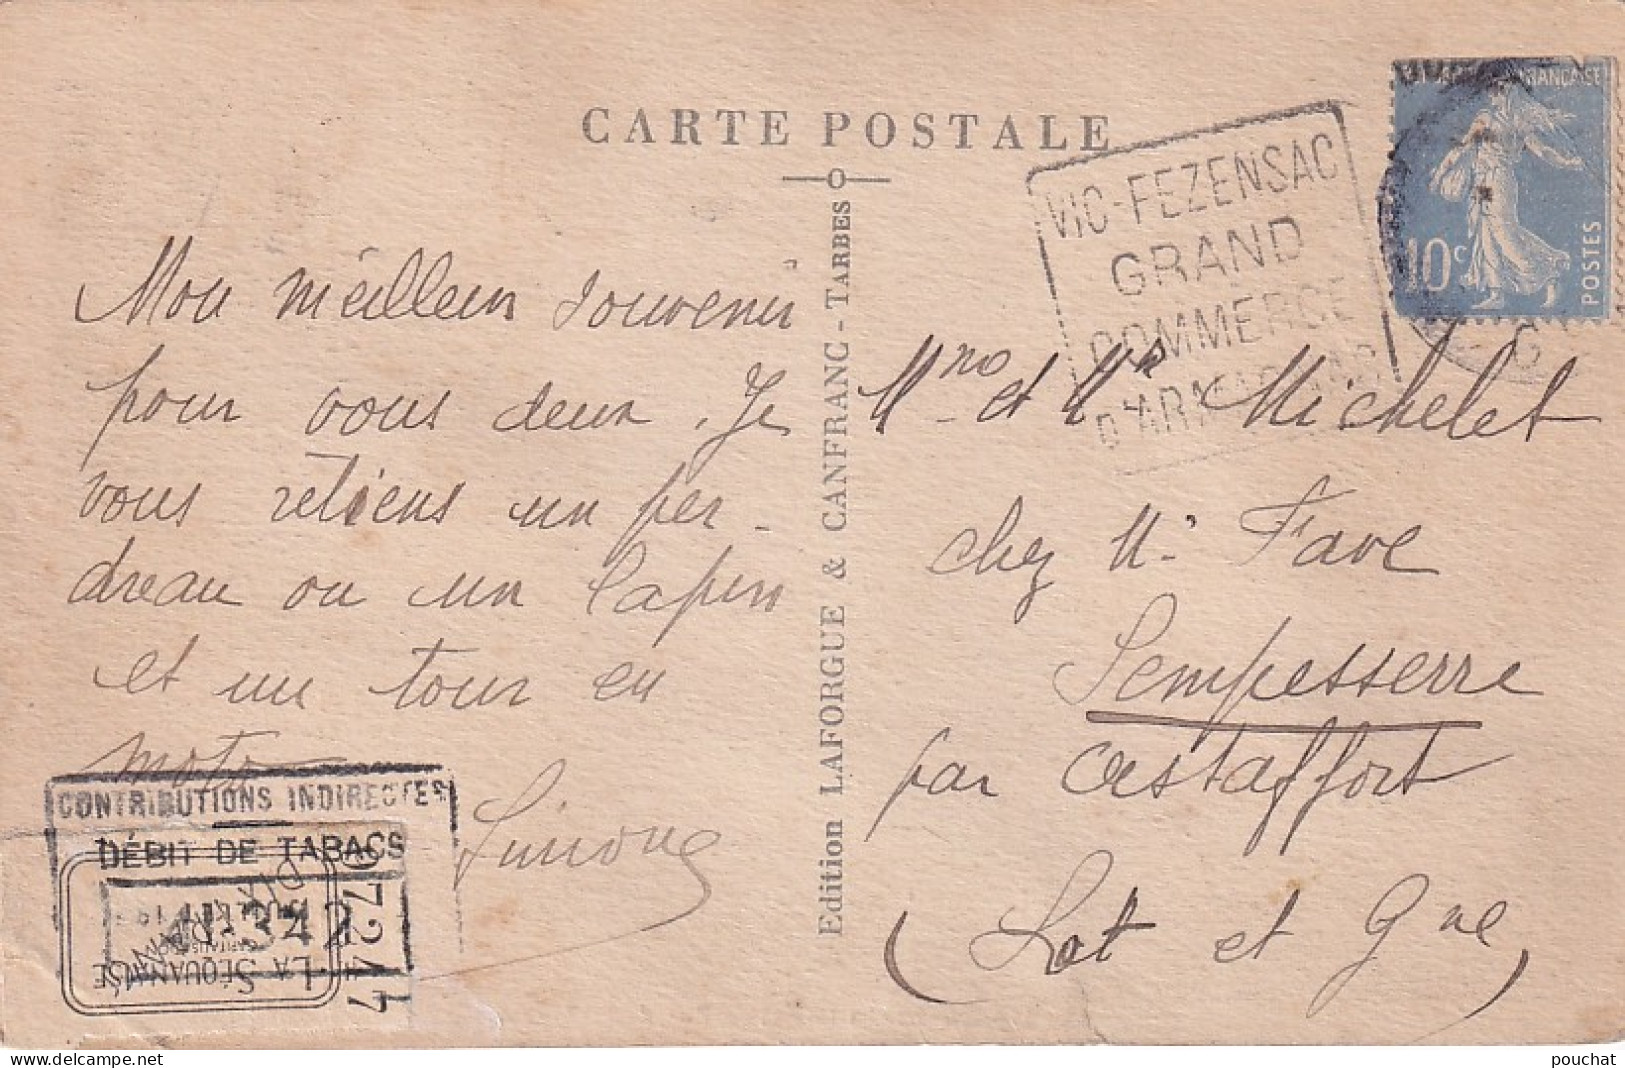 CARTE POSTALE
Mon meilleur souvenir
pour vous deux. Je
vous retiens un per-
dreau ou un lapin
et un tour en
moto
Simone
CONTRIBUTIONS INDIRECTES
DÉBIT DE TABACS
LA SÉQUANAISE
CAPITALISATION
Edition LAFORGUE & CANFRANC - TARBES
VIC-FEZENSAC
GRAND
COMMERCE
D'ARMAGNAC
FRANÇAISE
10c
POSTES
Mme et Mr Michelet
chez Mr Fave
Sempesserre
par Astaffort
(Lot et Gne)
pouchat
delcampe.net